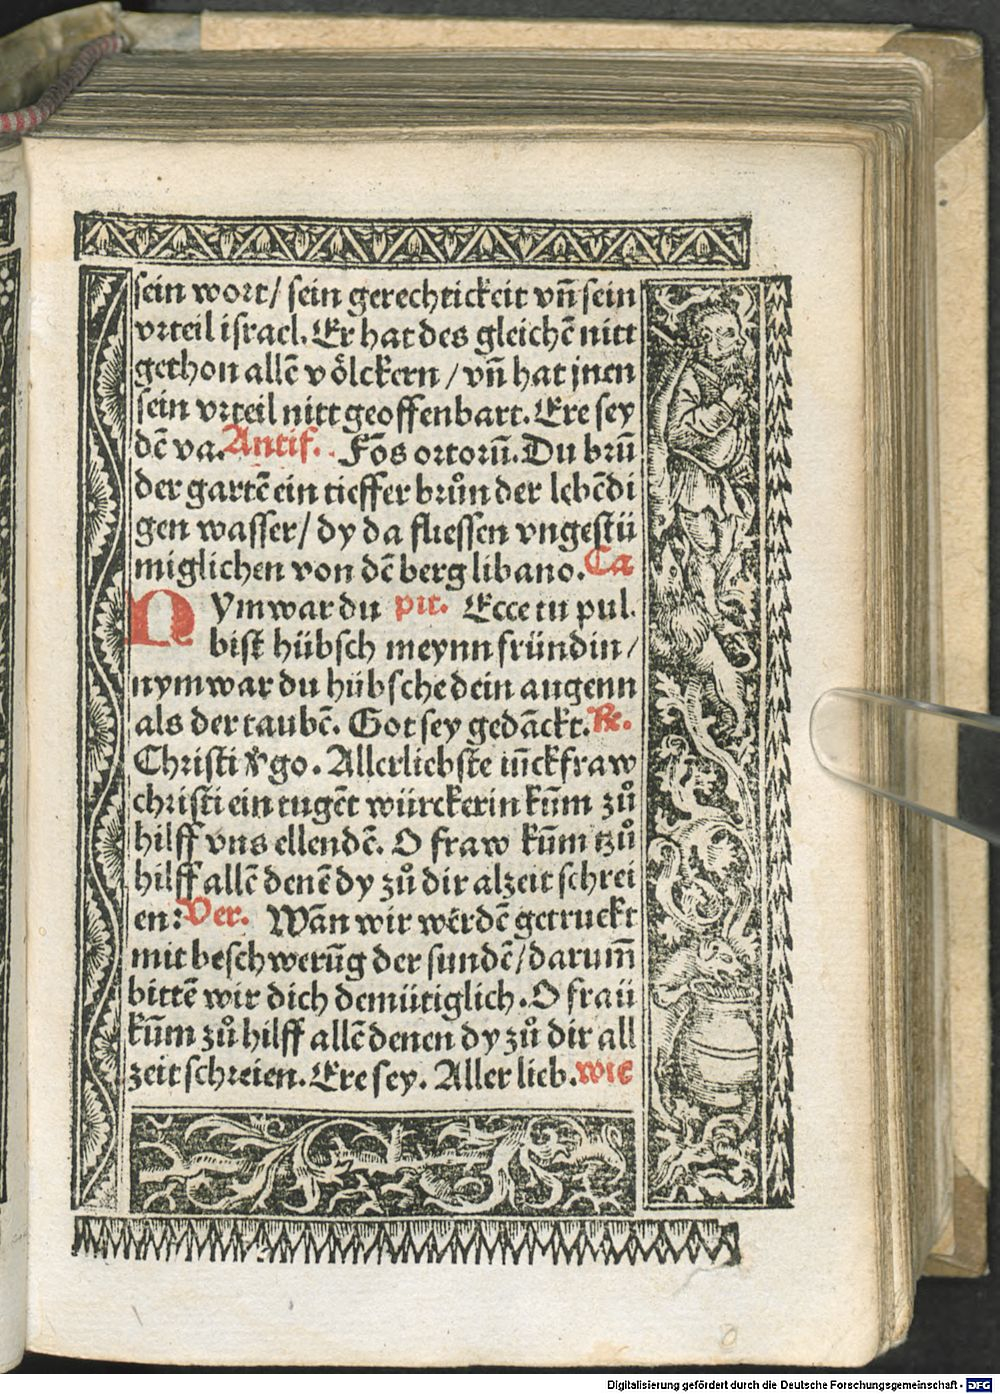 sein wort/ sein gerechtickeit vñ sein
vrteil israel. Er hat des gleichē nitt
gethon allē völckern / vñ hat jnen
sein vrteil nitt geoffenbart. Ere sey
dē va. Antif. Fōs ortorū. Du brū
der gartē ein tieffer brůn der lebēdi
gen wasser/ dy da fliessen vngestü
miglichen von dē berg libano. Ca
NYm war du pit. Ecce tu pul.
bist hübsch meynn fründin/
nym war du hübsche dein augenn
als der taubē. Got sey gedāckt. R̃.
Christi go. Allerliebste iūckfraw
christi ein tugēt würckerin kūm zů
hilff vns ellendē. O fraw kūm tzů
hilff allē denē dy zů dir alzeit schrei
en: Ver. Wān wir wērdē getruckt
mit beschwerūg der sundē/ darum̄
bittē wir dich demütiglich. O fraü
kūm zů hilff allē denen dy zů dir all
zeit schreien. Ere sey. Aller lieb. wie
Digitalisierung gefördert durch die Deutsche Forschungsgemeinschaft - DFG